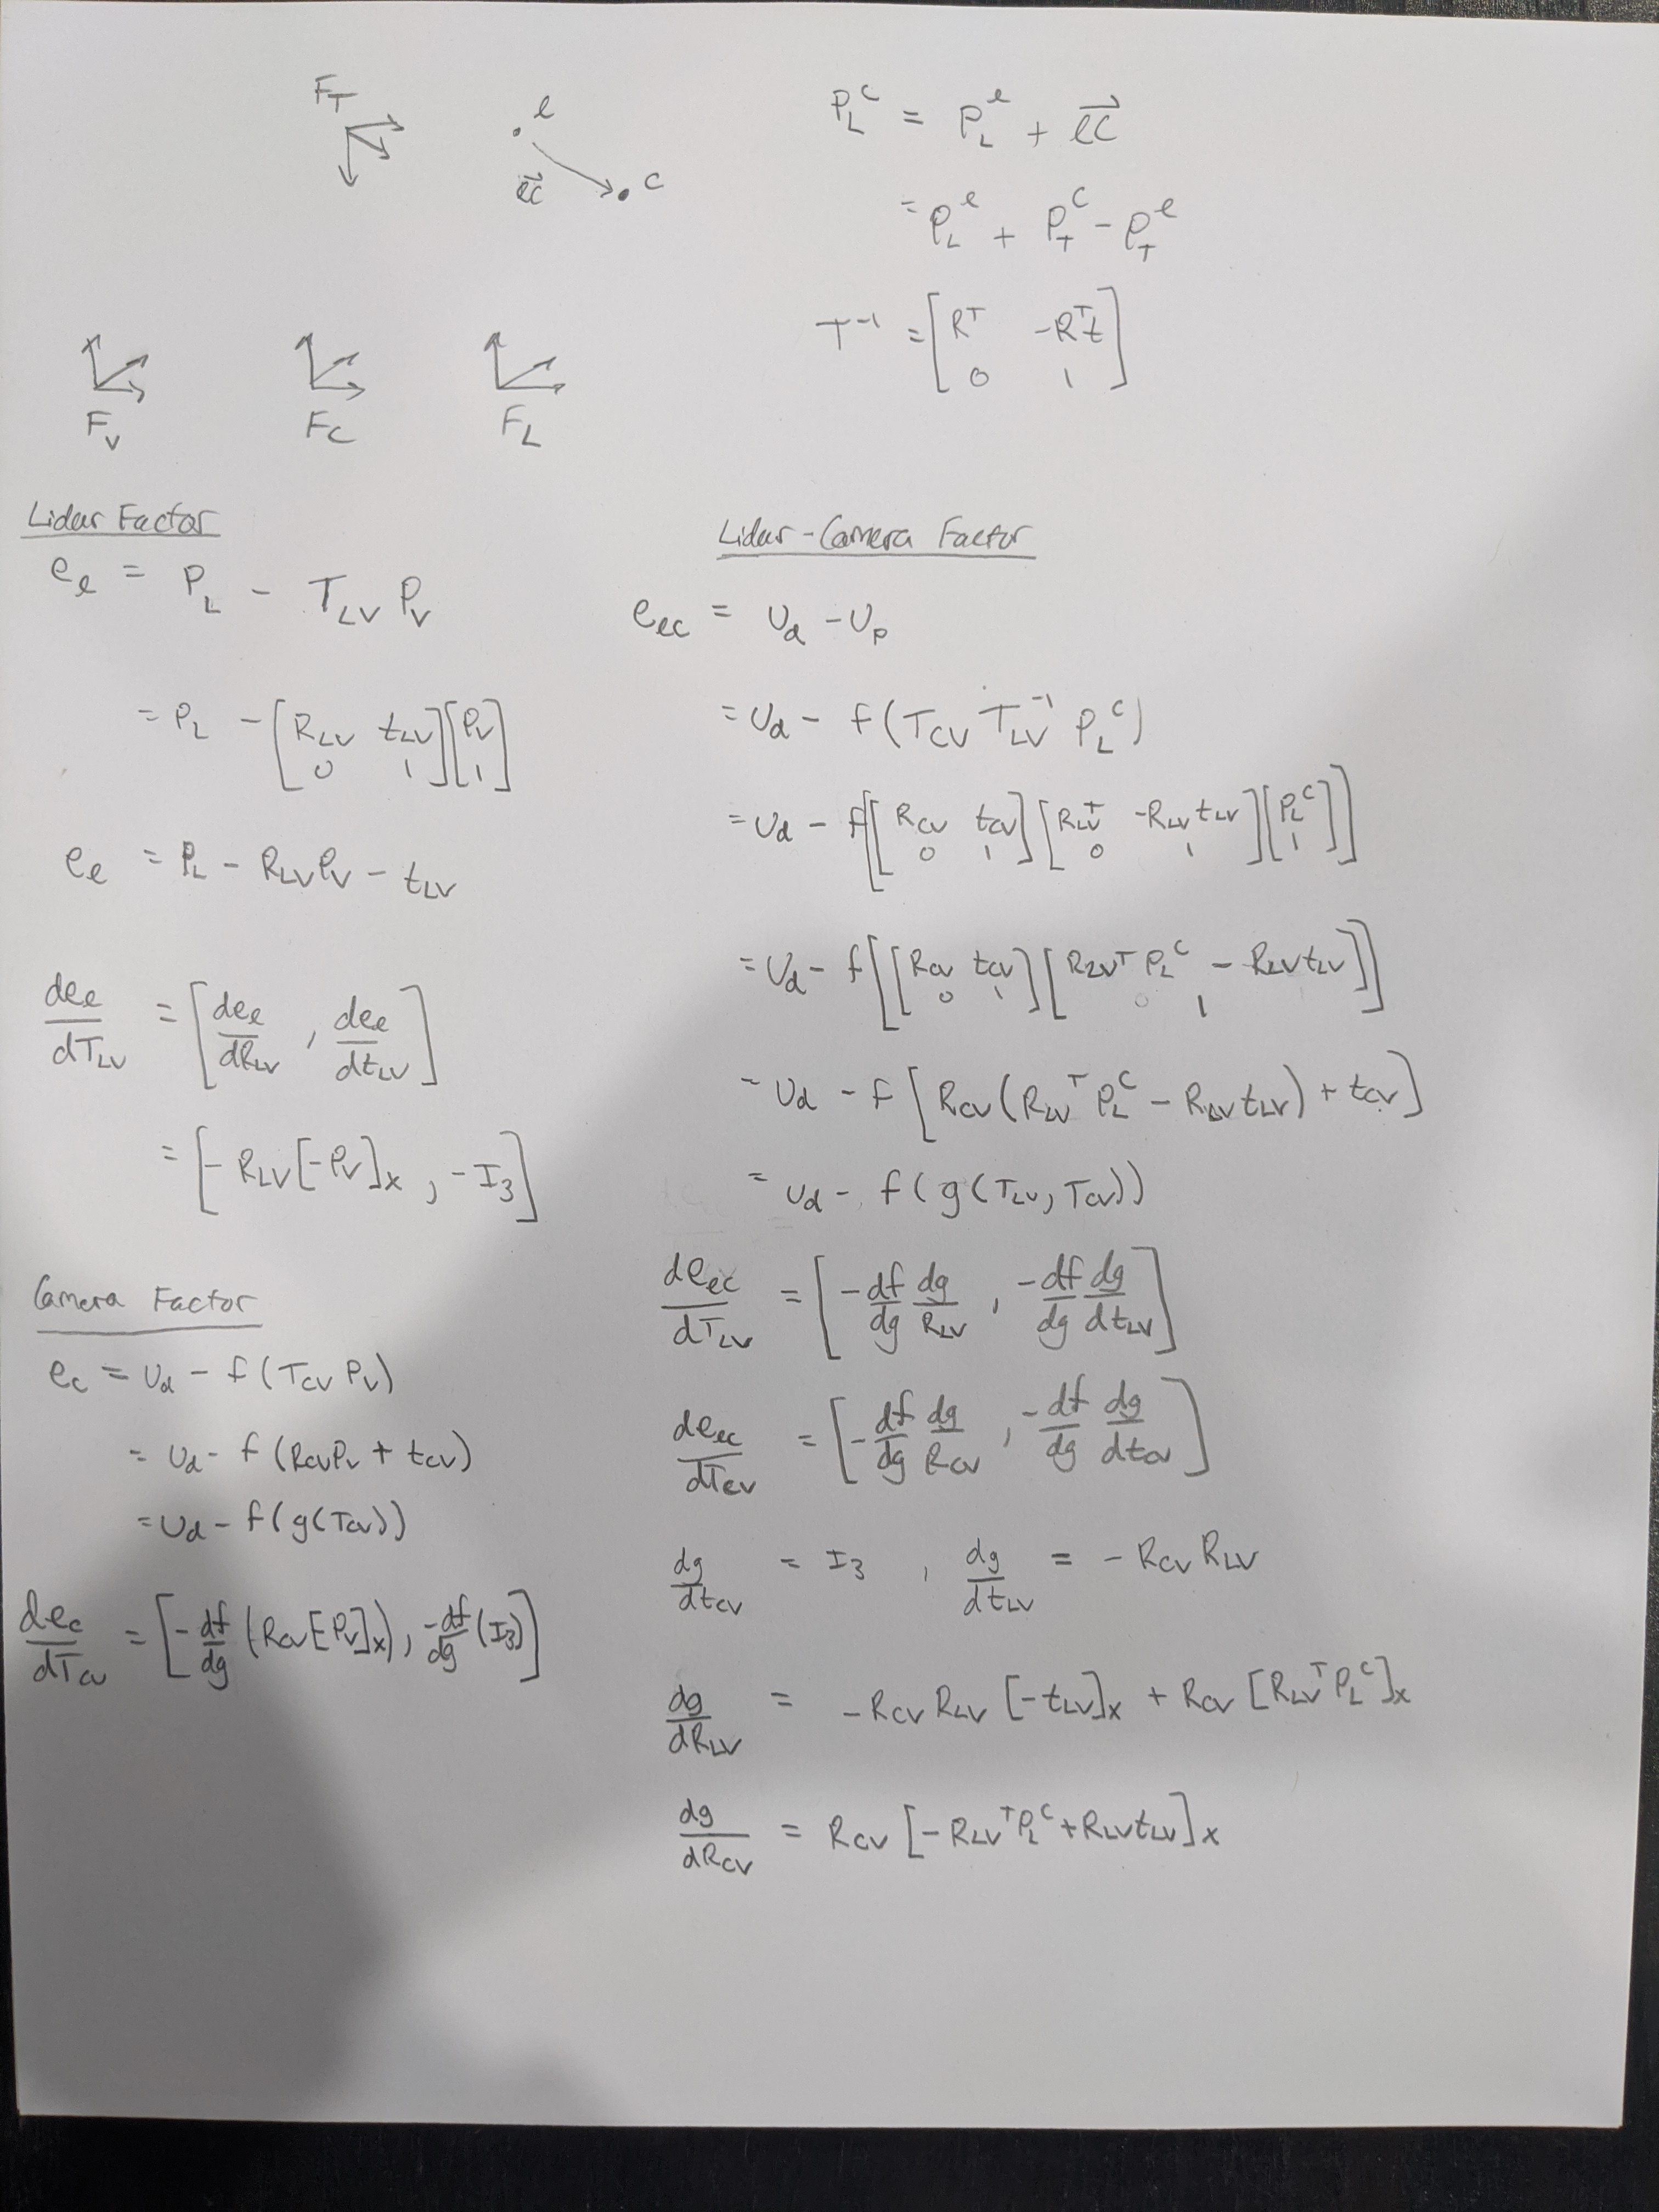 F_T
l
P_L^C = P_L^l + \vec{lc}
\vec{lc} c
= P_L^l + P_T^C - P_T^l
T^{-1} = [R^T -R^T t; 0 1]
F_V F_C F_L
Lidar Factor
e_l = P_L - T_{LV} P_V
= P_L - [R_{LV} t_{LV}; 0 1][P_V; 1]
e_l = P_L - R_{LV}P_V - t_{LV}
de_l/dT_{LV} = [de_l/dR_{LV}, de_l/dt_{LV}]
= [-R_{LV}[-P_V]_x, -I_3]
Camera Factor
e_c = U_d - f(T_{CV} P_V)
= U_d - f(R_{CV}P_V + t_{CV})
= U_d - f(g(T_{CV}))
de_c/dT_{CV} = [-df/dg (R_{CV}[P_V]_x), -df/dg (I_3)]
Lidar-Camera Factor
e_{lc} = U_d - U_p
= U_d - f(T_{CV} T_{LV}^{-1} P_L^C)
= U_d - f[[R_{CV} t_{CV}; 0 1][R_{LV}^T -R_{LV}t_{LV}; 0 1][P_L^C; 1]]
= U_d - f[[R_{CV} t_{CV}; 0 1][R_{LV}^T P_L^C - R_{LV}t_{LV}; 1]]
= U_d - f[R_{CV}(R_{LV}^T P_L^C - R_{LV}t_{LV}) + t_{CV}]
= U_d - f(g(T_{LV}, T_{CV}))
de_{lc}/dT_{LV} = [-df/dg dg/R_{LV}, -df/dg dg/dt_{LV}]
de_{lc}/dT_{CV} = [-df/dg dg/R_{CV}, -df/dg dg/dt_{CV}]
dg/dt_{CV} = I_3, dg/dt_{LV} = -R_{CV} R_{LV}
dg/dR_{LV} = -R_{CV} R_{LV} [-t_{LV}]_x + R_{CV} [R_{LV}^T P_L^C]_x
dg/dR_{CV} = R_{CV} [-R_{LV}^T P_L^C + R_{LV}t_{LV}]_x